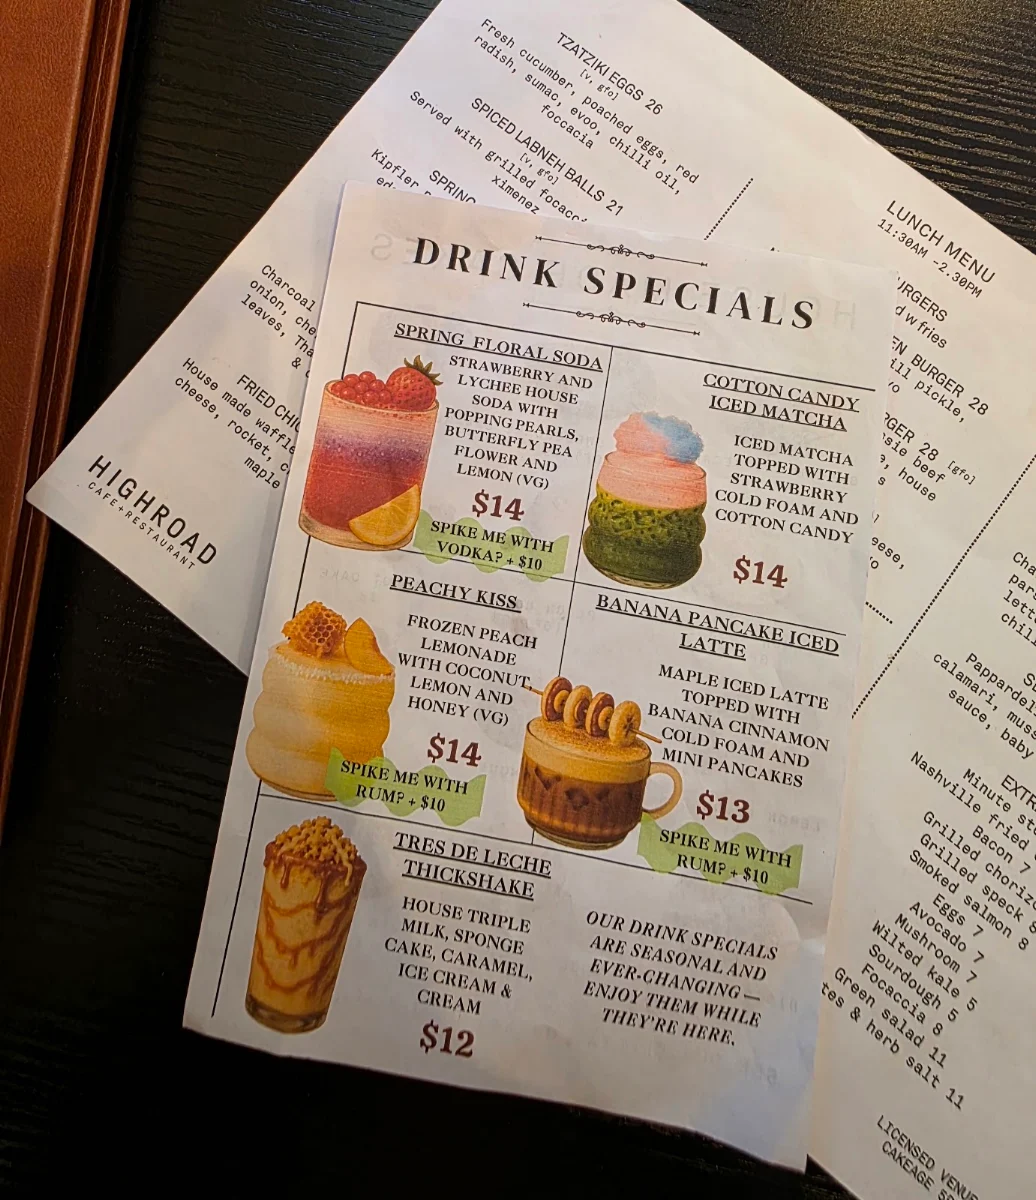 TZATZIKI EGGS 26
[v, gfo]
Fresh cucumber, poached eggs, red
radish, sumac, evoo, chilli oil,
foccacia
SPICED LABNEH BALLS 21
[v, gfo]
Served with grilled focacc
ximenez
SPRING
Kipfler
Charcoal
onion, che
leaves, Tha
&
FRIED CHIC
House made waffle
cheese, rocket, c
maple
HIGHROAD
CAFE+RESTAURANT
DRINK SPECIALS
SPRING FLORAL SODA
STRAWBERRY AND
LYCHEE HOUSE
SODA WITH
POPPING PEARLS,
BUTTERFLY PEA
FLOWER AND
LEMON (VG)
$14
SPIKE ME WITH
VODKA? + $10
COTTON CANDY
ICED MATCHA
ICED MATCHA
TOPPED WITH
STRAWBERRY
COLD FOAM AND
COTTON CANDY
$14
PEACHY KISS
FROZEN PEACH
LEMONADE
WITH COCONUT,
LEMON AND
HONEY (VG)
$14
SPIKE ME WITH
RUM? + $10
BANANA PANCAKE ICED
LATTE
MAPLE ICED LATTE
TOPPED WITH
BANANA CINNAMON
COLD FOAM AND
MINI PANCAKES
$13
SPIKE ME WITH
RUM? + $10
TRES DE LECHE
THICKSHAKE
HOUSE TRIPLE
MILK, SPONGE
CAKE, CARAMEL,
ICE CREAM &
CREAM
$12
OUR DRINK SPECIALS
ARE SEASONAL AND
EVER-CHANGING —
ENJOY THEM WHILE
THEY'RE HERE.
LUNCH MENU
11:30AM -2.30PM
URGERS
d w fries
EN BURGER 28
ill pickle,
yo
RGER 28 [gfo]
sie beef
e, house
s
eese,
yo
Cha
par
chil
Pappardel
calamari, muss
sauce, baby
EXTRA
Minute st
Nashville fried
Bacon 7
Grilled chorizo
Grilled speck 8
Smoked salmon 8
Eggs 7
Avocado 7
Mushroom 7
Wilted kale 5
Sourdough 5
Focaccia 8
Green salad 11
tes & herb salt 11
LICENSED VENUE
CAKEAGE